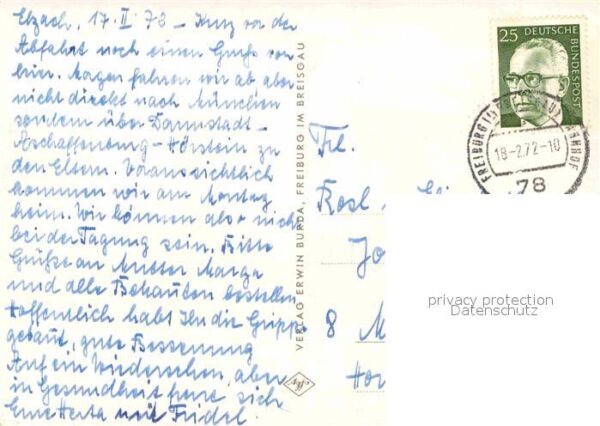 Elzach, 17. II. 73 – Kurz vor der
Abfahrt noch einen Gruß von
hier. Morgen fahren wir ab aber
nicht direkt nach München
sondern über Darmstadt –
Aschaffenburg – Hörstein zu
den Eltern. Voraussichtlich
kommen wir am Montag
heim. Wir können also nicht
bei der Tagung sein. Bitte
Grüße an Mutter Marga
und alle Bekannten bestellen
Hoffentlich habt Ihr die Grippe
gebaut, gute Besserung
Auf ein Wiedersehen, aber
in Gesundheit freue sich
Eure Herta und Friedel.
VERLAG ERWIN BURDA, FREIBURG IM BREISGAU
25 DEUTSCHE
BUNDESPOST
FREIBURG
18-2.72-10
78
Frl.
Rosl
8 M
privacy protection
Datenschutz